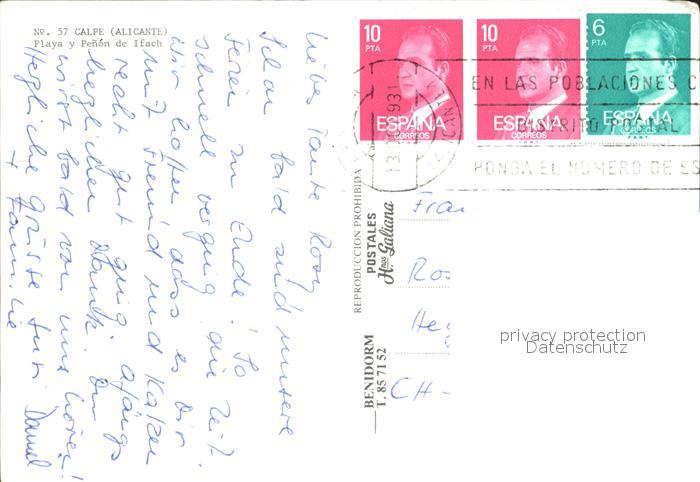 Nº. 57 CALPE (ALICANTE)
Playa y Peñón de Ifach
Liebe Tante Rosy
Schon bald sind unsere
Ferien zu Ende! So
schnell verging die Zeit.
Wir hoffen dass es Dir
mit Freind und Katzen
recht gut ging
herzlichen Dank. Du
wirst bald von uns hören!
Herzliche Grüsse
+ Familie Daniel
REPRODUCCION PROHIBIDA
POSTALES
Hnos Galiana
BENIDORM
T. 85 71 52
10
PTA
ESPAÑA
CORREOS
10
PTA
ESPAÑA
CORREOS
6
PTA
ESPAÑA
CORREOS
EN LAS POBLACIONES C
DISTRITO POSTAL
PONGA EL NUMERO DE ES
Frau
Ros
He
CH-
privacy protection
Datenschutz